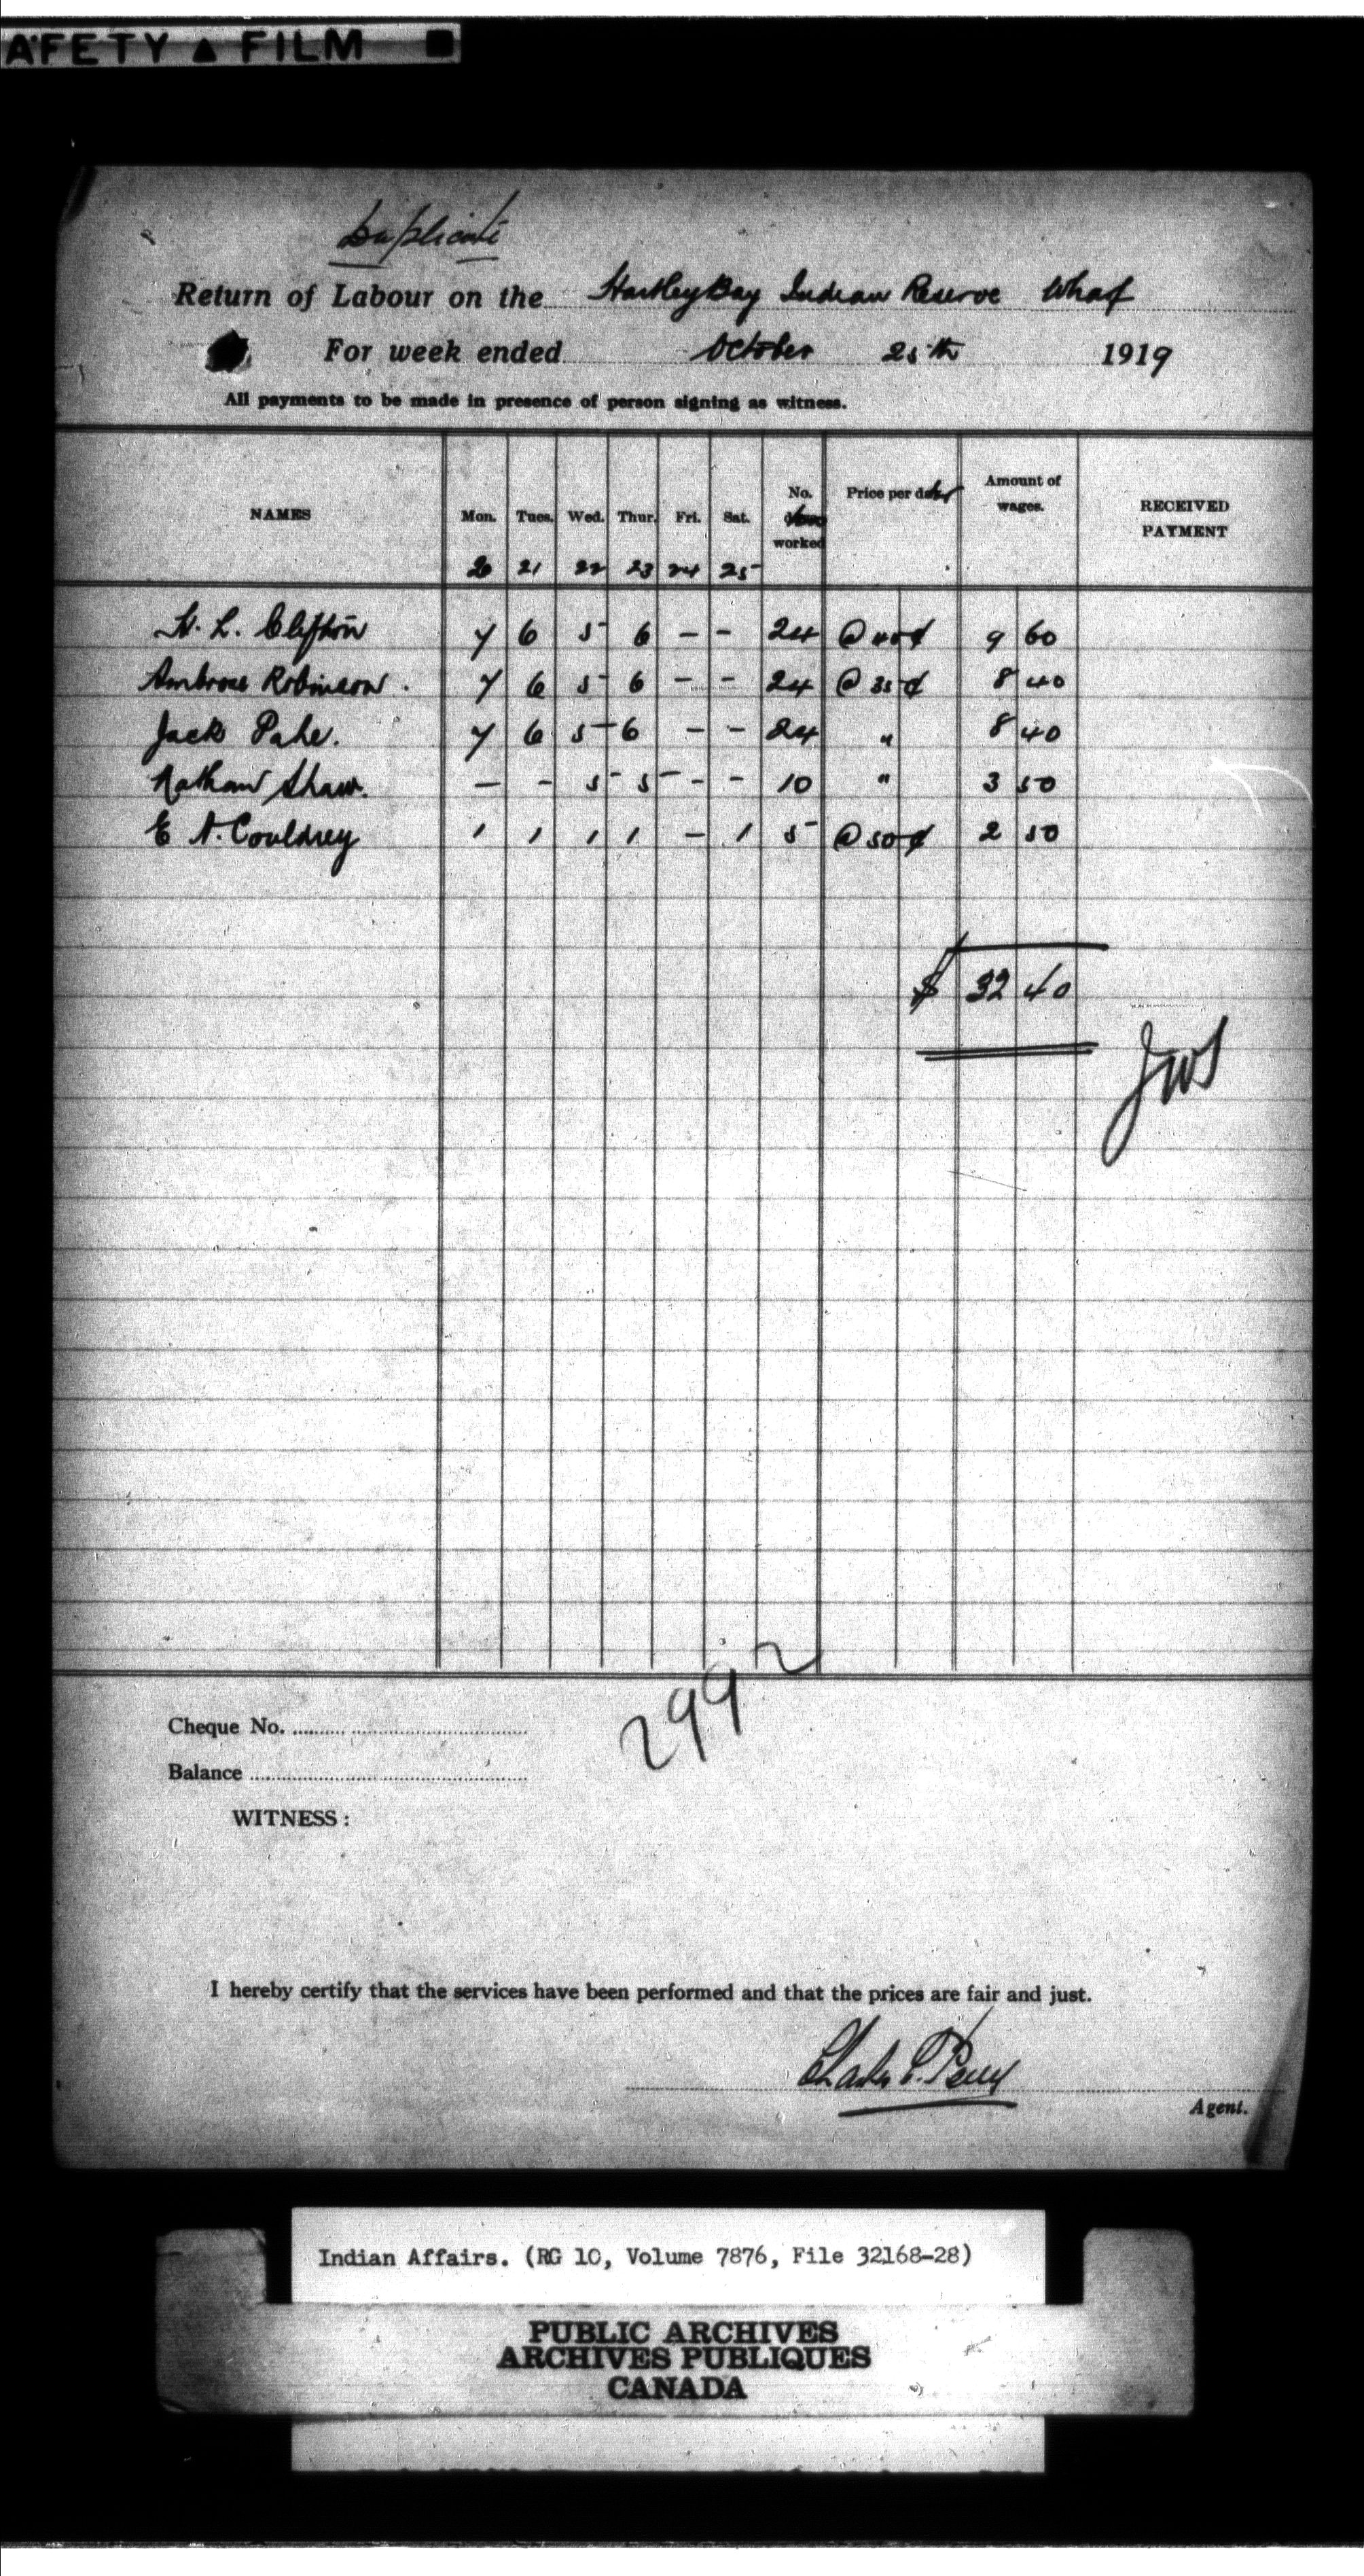 AFETY ▲ FILM ■
Duplicate
Return of Labour on the Hartley Bay Indian Reserve Wharf
For week ended October 25th 1919
All payments to be made in presence of person signing as witness.
NAMES Mon. Tues. Wed. Thur. Fri. Sat. No. worked Price per Amount of wages. RECEIVED PAYMENT
20 21 22 23 24 25
H. L. Clifton 7 6 5 6 - - 24 @ 40 ¢ 9 60
Ambrose Robinson. 7 6 5 6 - - 24 @ 35 ¢ 8 40
Jack Pahe. 7 6 5 6 - - 24 " 8 40
Nathan Shaw. - - 5 5 - - 10 " 3 50
E N. Couldrey 1 1 1 1 - 1 5 @ 50 ¢ 2 50
$ 32 40
JWS
2992
Cheque No.
Balance
WITNESS:
I hereby certify that the services have been performed and that the prices are fair and just.
Charles C. Perry
Agent.
Indian Affairs. (RG 10, Volume 7876, File 32168-28)
PUBLIC ARCHIVES
ARCHIVES PUBLIQUES
CANADA